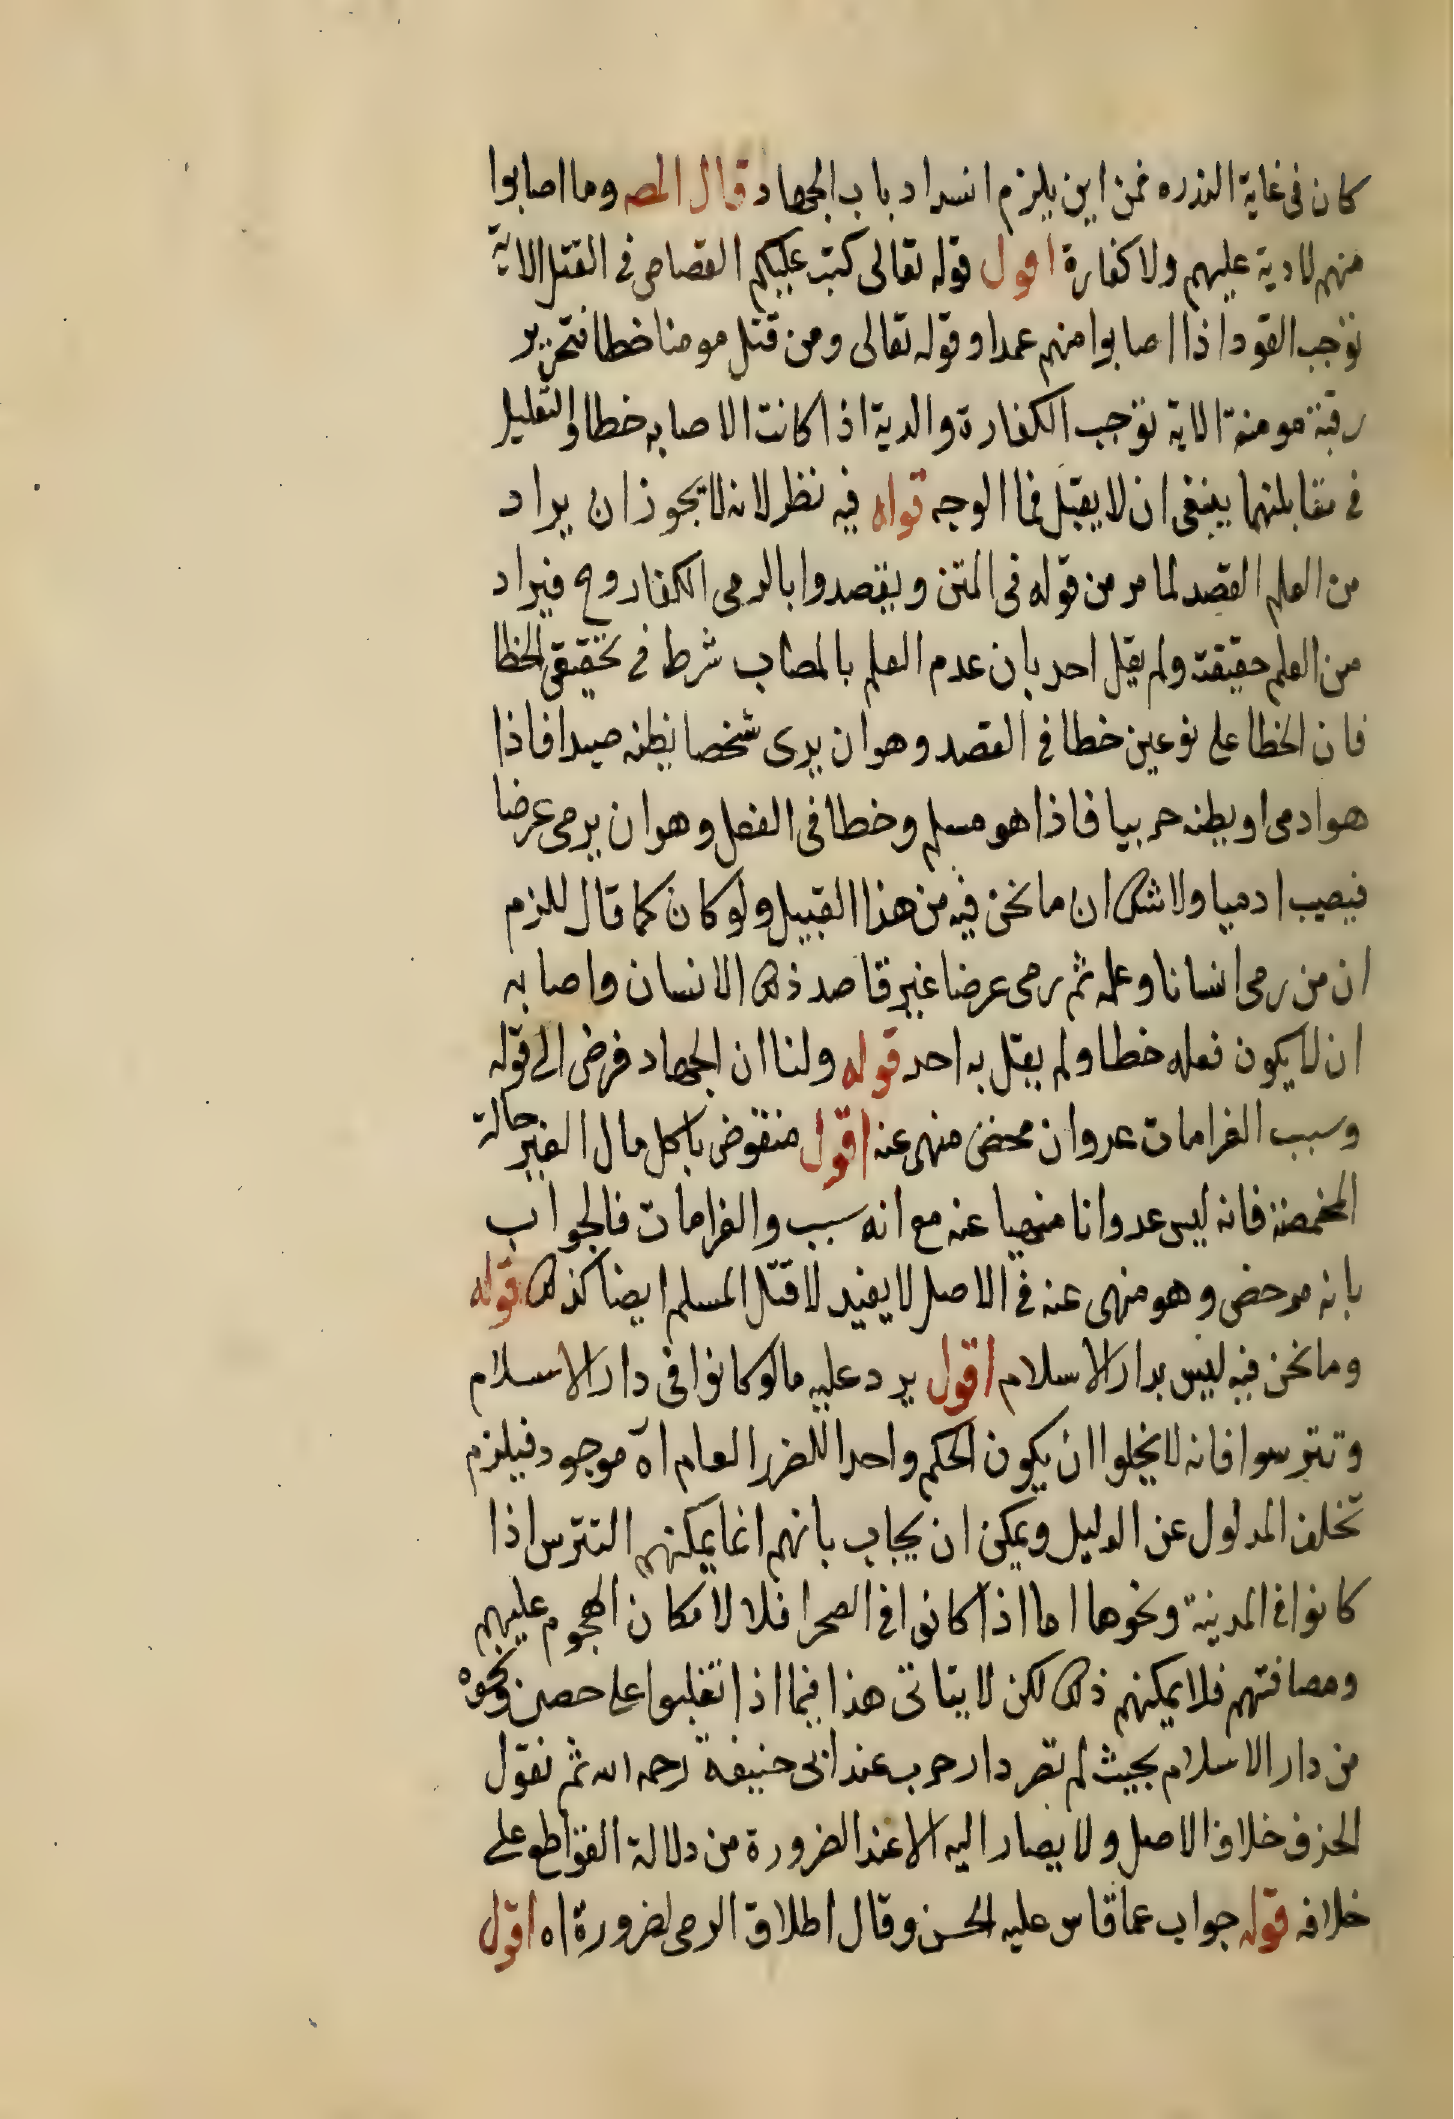 كان فى غاية الندره فمن اين يلزم انسداد باب الجهاد قال المص وما اصابوا
منهم لا دية عليهم ولا كفارة اقول قوله تعالى كتب عليكم القصاص فى القتل الاية
توجب القود اذا اصابوا منهم عمدا وقوله تعالى ومن قتل مومنا خطا فتحرير
رقبة مومنة الاية توجب الكفارة والدية اذا كانت الاصابه خطا والتعليل
فى مقابلتهما ينبغى ان لا يقبل فما الوجه قوله فيه نظر لانه لا يجوز ان يراد
من العلم القصد لما مر من قوله فى المتن ويقصدوا بالرمى الكفار وح فيراد
من العلم حقيقته ولم يقل احد بان عدم العلم بالمصاب شرط فى تحقيق الخطا
فان الخطا على نوعين خطا فى القصد وهو ان يرى شخصا يظنه صيدا فاذا
هو ادمى او يظنه حربيا فاذا هو مسلم وخطا فى الفعل وهو ان يرمى عرضا
فيصيب ادميا ولا شك ان ما نحن فيه من هذا القبيل ولو كان كما قال للزم
ان من رمى انسانا وعلمه ثم رمى عرضا غير قاصد ذلك الانسان واصابه
ان لا يكون فعله خطا ولم يقل به احد قوله ولنا ان الجهاد فرض الى قوله
وسبب الغرامات عدوان محض منهى عنه اقول منقوض باكل مال الغير حالة
المخمصة فانه ليس عدوانا منهيا عنه مع انه سبب والغرامات فالجواب
بانه مرخص وهو منهى عنه فى الاصل لا يفيد لا قتل المسلم ايضا كذلك قوله
وما نحن فيه ليس بدار الاسلام اقول يرد عليه ما لو كانوا فى دار الاسلام
وتترسوا فانه لا يخلوا ان يكون الحكم واحدا للضرر العام اه موجود فيلزم
تخلف المدلول عن الدليل ويمكن ان يجاب بانهم انما يمكنهم التترس اذا
كانوا فى المدينة ونحوها اما اذا كانوا فى الصحرا فلا لامكان الهجوم عليهم
ومصافتهم فلا يمكنهم ذلك لكن لا يتاتى هذا فيما اذا تغلبوا على حصن ونحوه
من دار الاسلام بحيث لم تصر دار حرب عند ابى حنيفة رحمه الله ثم نقول
الحذف خلاف الاصل ولا يصار اليه الا عند الضرورة من دلالة القواطع على
خلافه قوله جواب عما قاس عليه الحسن وقال اطلاق الرمى لضرورة اه اقول